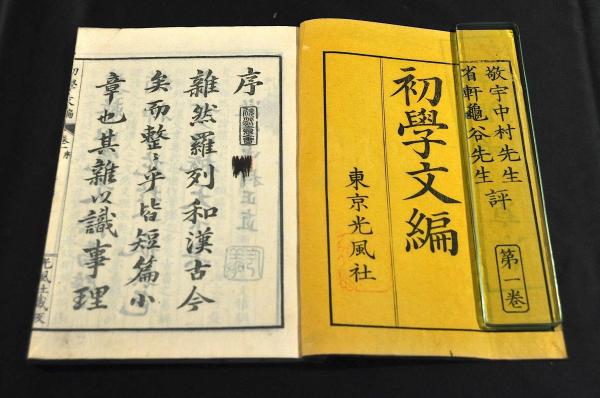 敬宇中村先生
省軒龜谷先生
評
第一卷
初學文編
東京光風社
序
雜然羅列和漢古今
矣而整〻乎皆短篇小
章也其雜以識事理
初學文編
卷一序
光風社藏